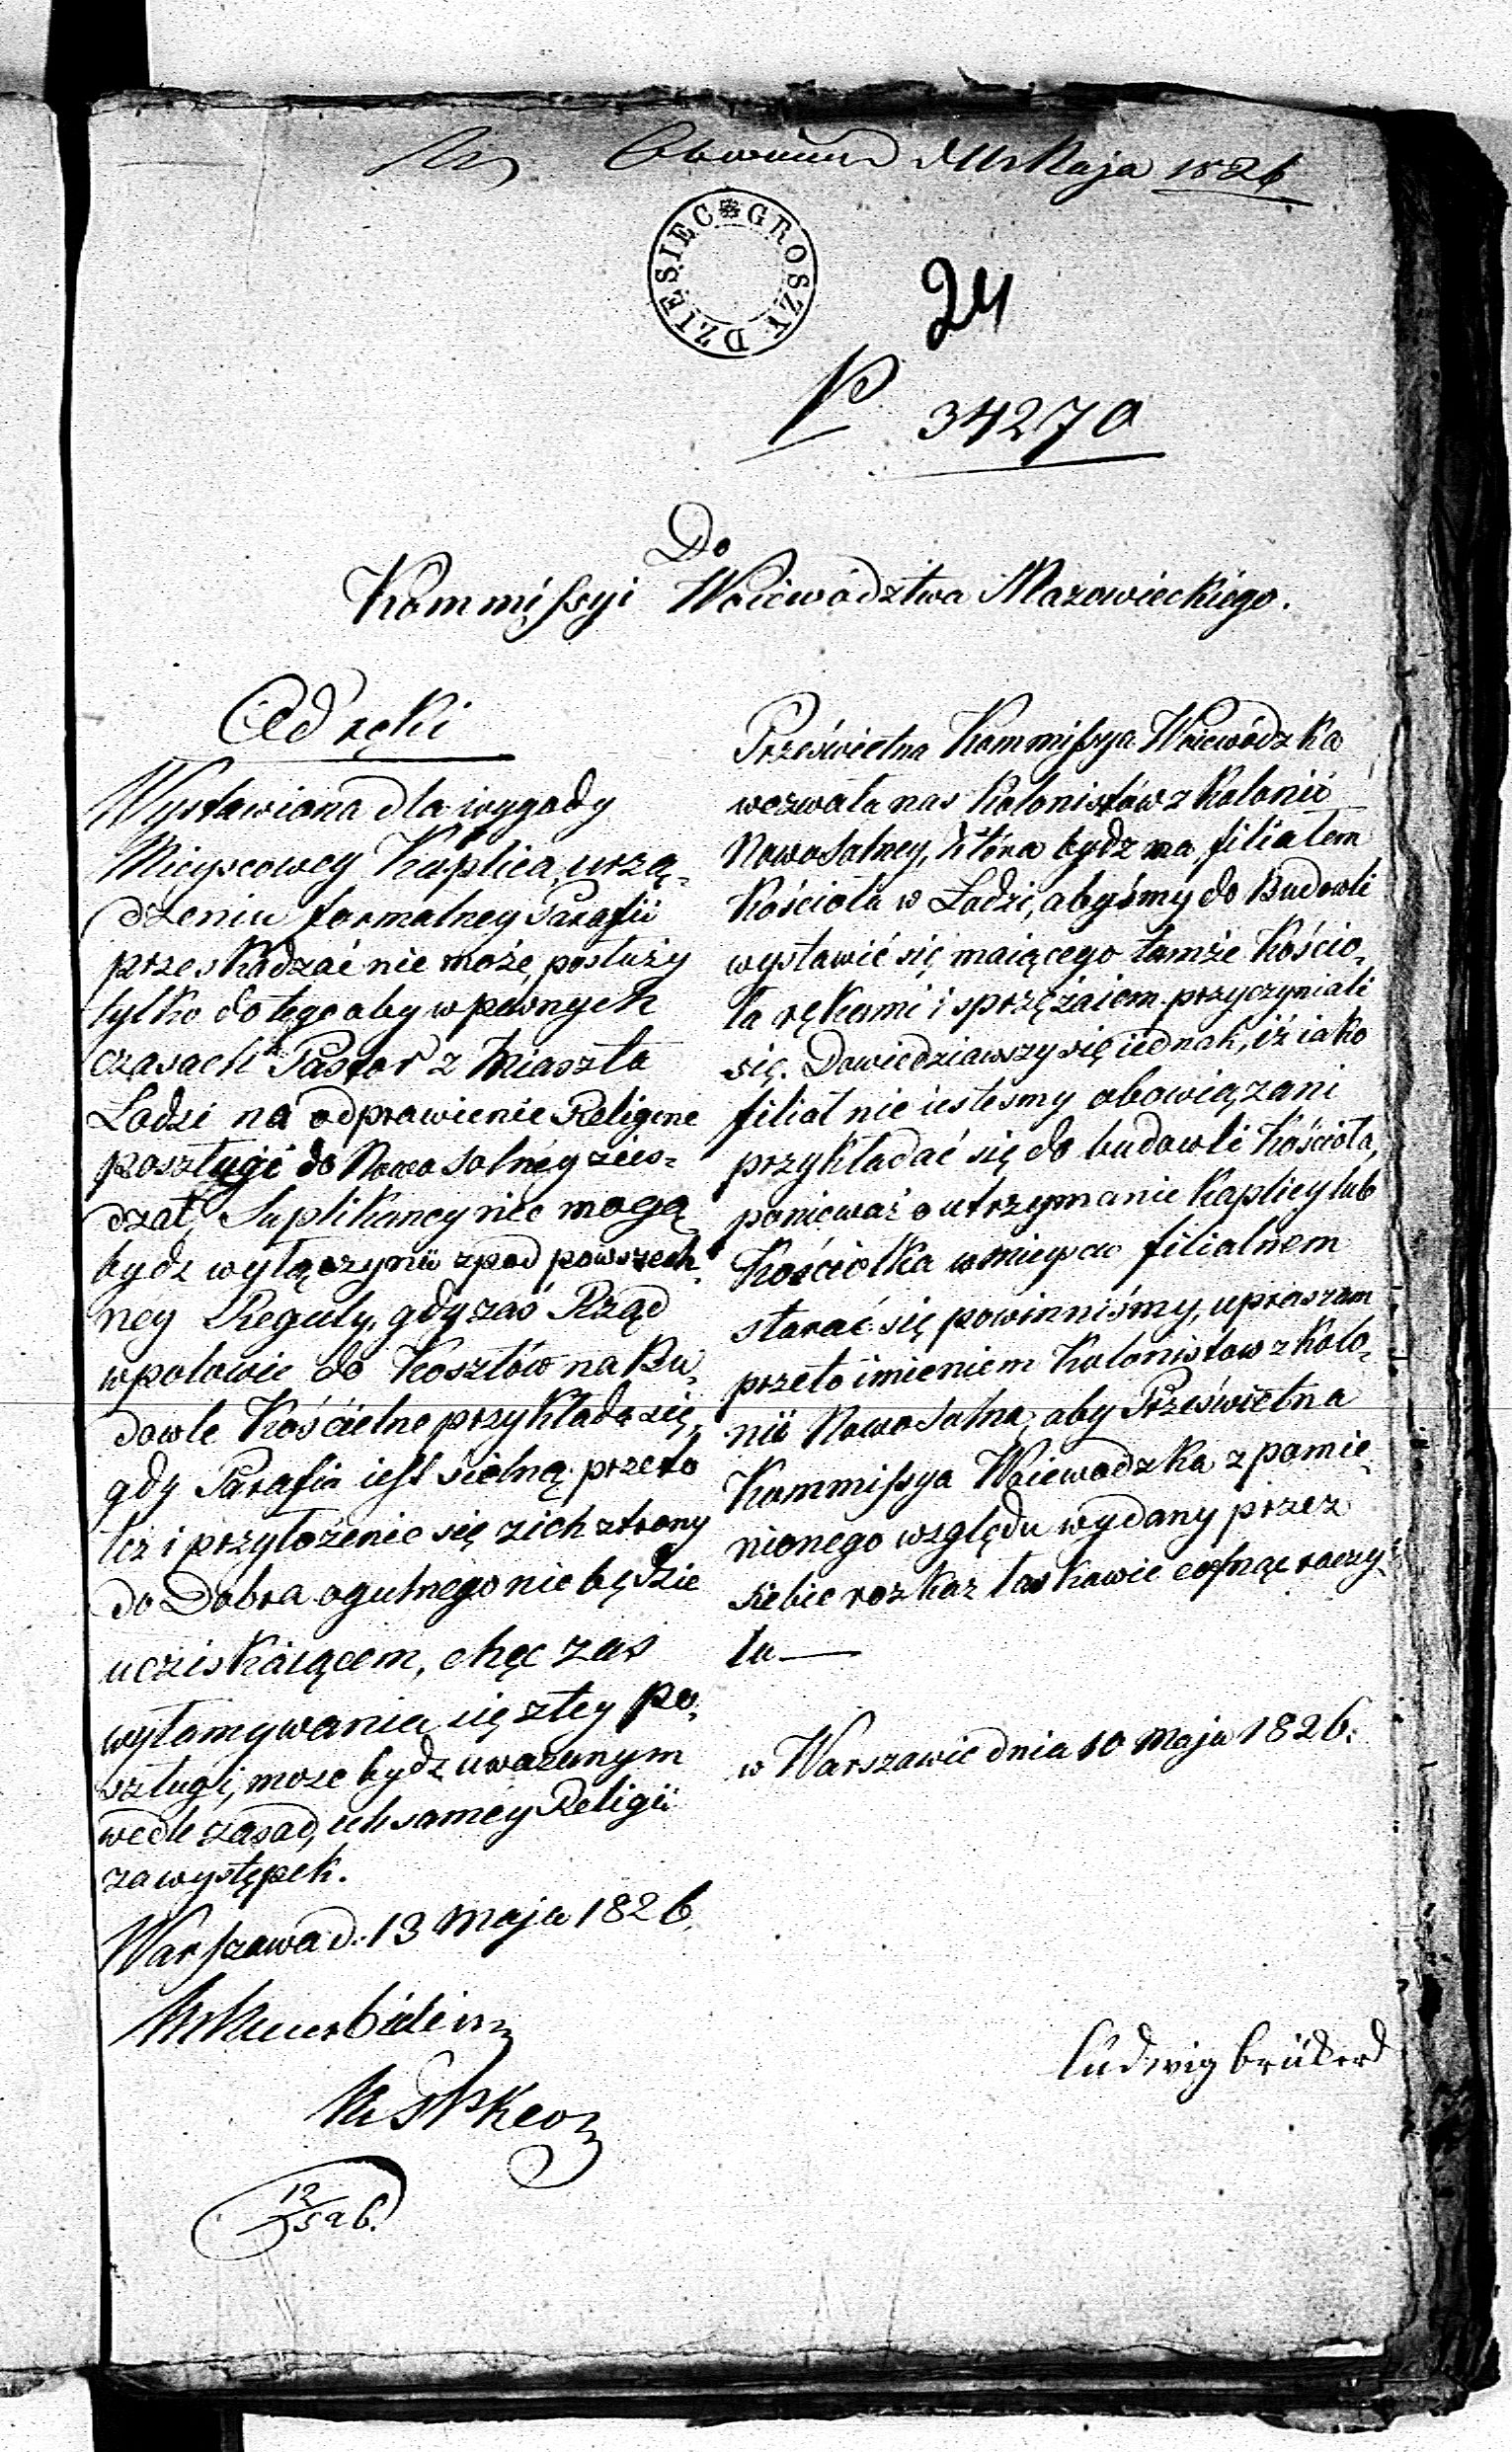 d 11 Maja 1826
DZIESIEC GROSZY
24
N 34270
Do
Kommissyi Woiewództwa Mazowieckiego.
Od ręki
Wystawiona dla wygody
Mieyscowey Kaplica, urzą-
dzeniu formalney Parafii
przeszkadzać nie może, posłuży
tylko do tego aby w pewnych
czasach Pastor z Miaszta
Łodzi na odprawienie Religine
poszługi do Nowo Solnéy zież-
dzał, Suplikancy nie mogą
bydz wyłączynii zpod powszech-
ney Reguły, gdy zaś Rząd
wpołowie do Kosztów na Bu-
dowle Kościelne przykłada się,
gdy Parafia iest sielną przeto
tez i przyłożenie się zich ztrony
do Dobra ogulnego nie będzie
ucziskaiącem, chęc zas
wyłamywania się ztey po-
szługi, moze bydz uwazanym
wedle zasad, ich saméy Religii
za występek.
Warszawa d. 13 Maja 1826.
12/5 26.
Prześwietna Kommissya Woiewódzka
wezwała nas Kolonistów z Kolonii
Nowosolney, która bydz ma filiałem
Kościoła w Łodzi, abyśmy do Budowli
wystawić się maiącego tamże Kościo-
ła rękami i sprzężaiem przyczyniali
się. Dowiedziawszy się iednak, iż iako
filiał nie iesteśmy obowiązani
przykładać się do budowli Kościoła,
ponieważ o utrzymanie Kaplicy lub
Kościołka w mieyscu filialnem
starać się powinniśmy, upraszam
przeto imieniem Kolonistow z Kolo-
nii Nowosolna, aby Prześwietna
Kommissya Woiewodzka z pomie-
nionego względu wydany przez
siebie rozkaz łaskawie cofnąć raczy-
ła —
w Warszawie dnia 10 Maja 1826.
Ludwig Brükerd